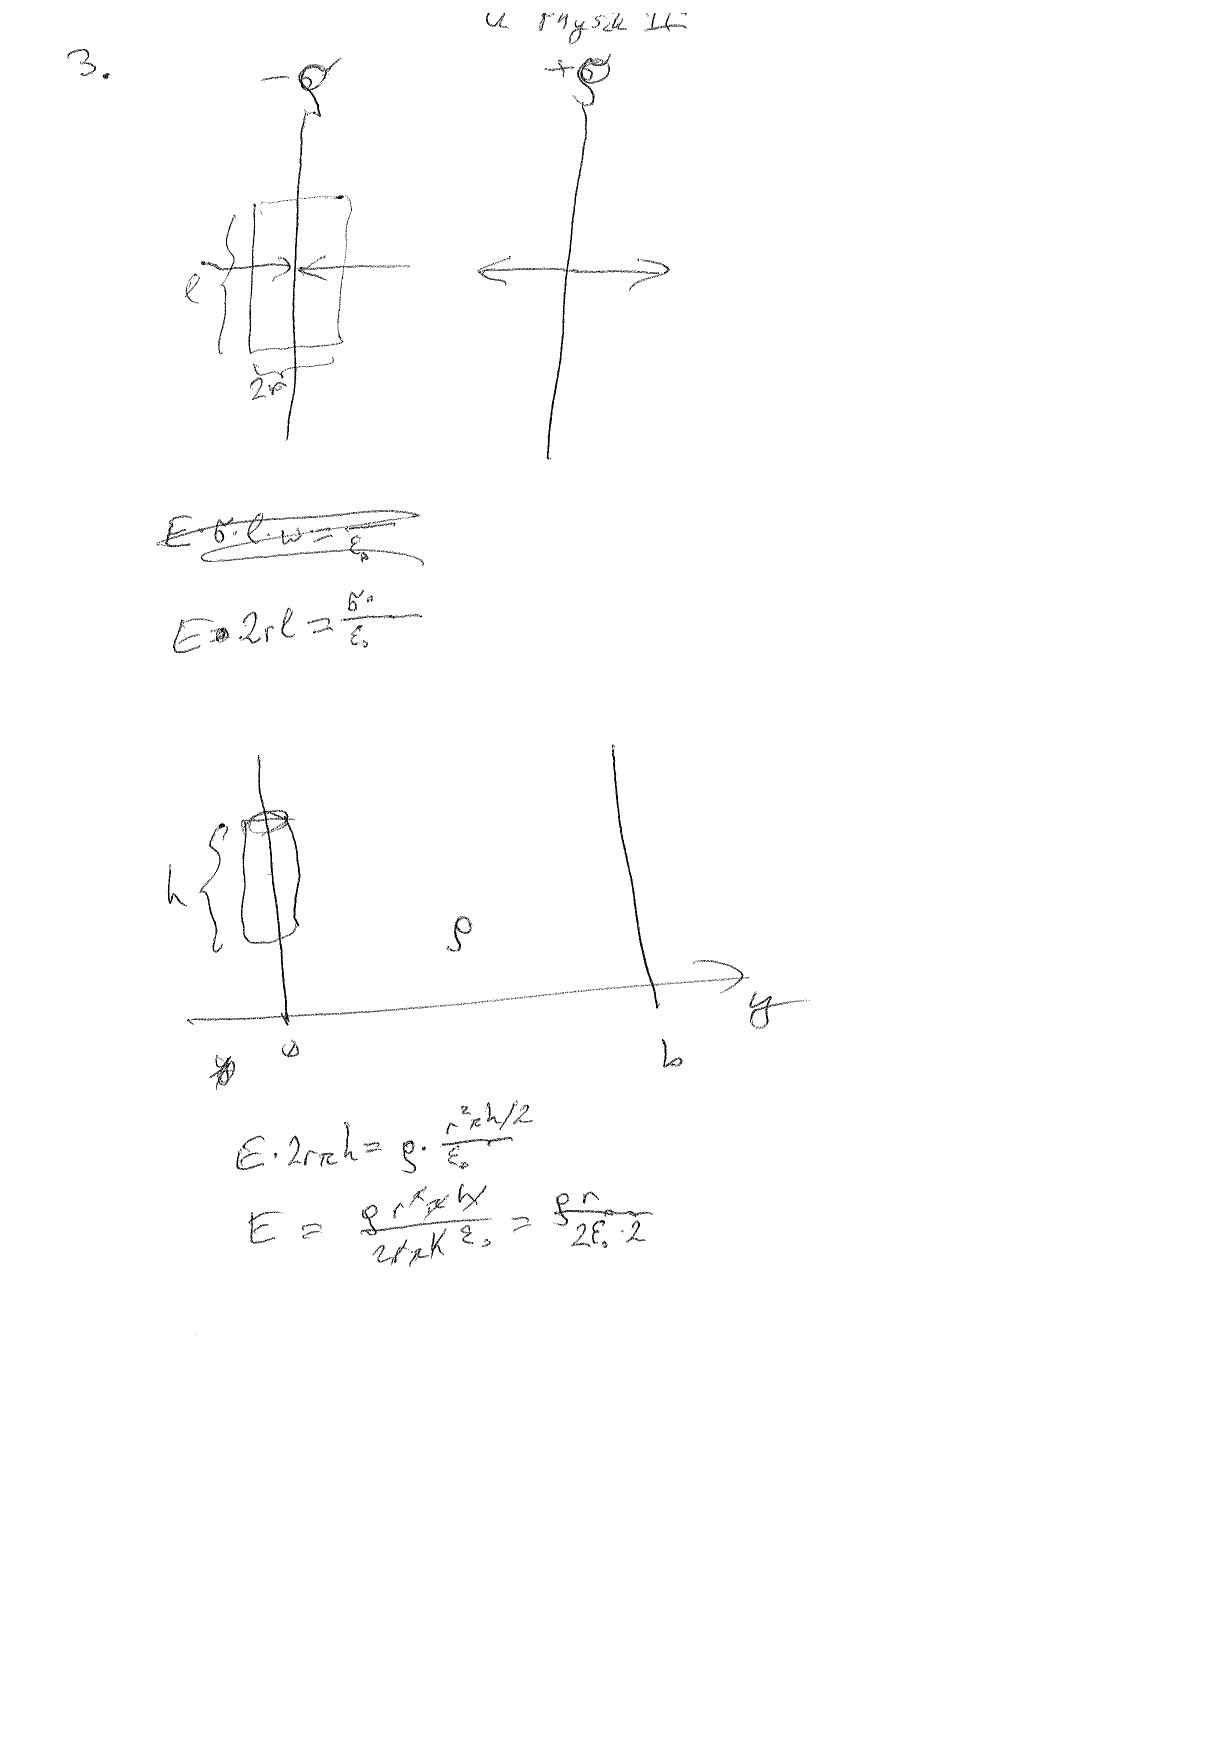 Physik II
3.
-σ +σ
l
2r
E·σ·l·w = / ε₀
E · 2rl = σ· / ε₀
h
ρ
y
0 b
E · 2rπh = ρ · r²πh/2 / ε₀
E = ρ r²πh / 2rπh ε₀ = ρ r / 2ε₀ · 2